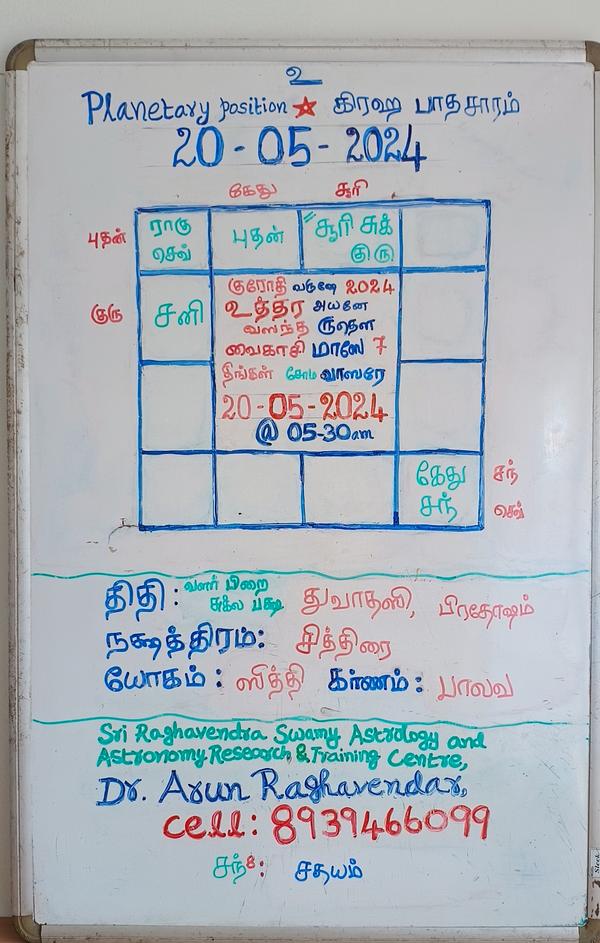 உ
Planetary position கிரஹ பாதசாரம்
20-05-2024
கேது சூரி
புதன் ராகு செவ் புதன் சூரி சுக் குரு
குரு சனி
குரோதி வருஷே 2024
உத்தர அயனே
வஸந்த ருதௌ
வைகாசி மாஸே 7
திங்கள் சோம வாஸரே
20-05-2024
@ 05-30am
கேது சந் சந் செவ்
திதி: வளர் பிறை சுக்ல பக்ஷ துவாதஸி, பிரதோஷம்
நக்ஷத்திரம்: சித்திரை
யோகம்: ஸித்தி கர்ணம்: பாலவ
Sri Raghavendra Swamy Astrology and
Astronomy Research & Training Centre,
Dr. Arun Raghavendar,
cell: 8939466099
சந்8: சதயம்